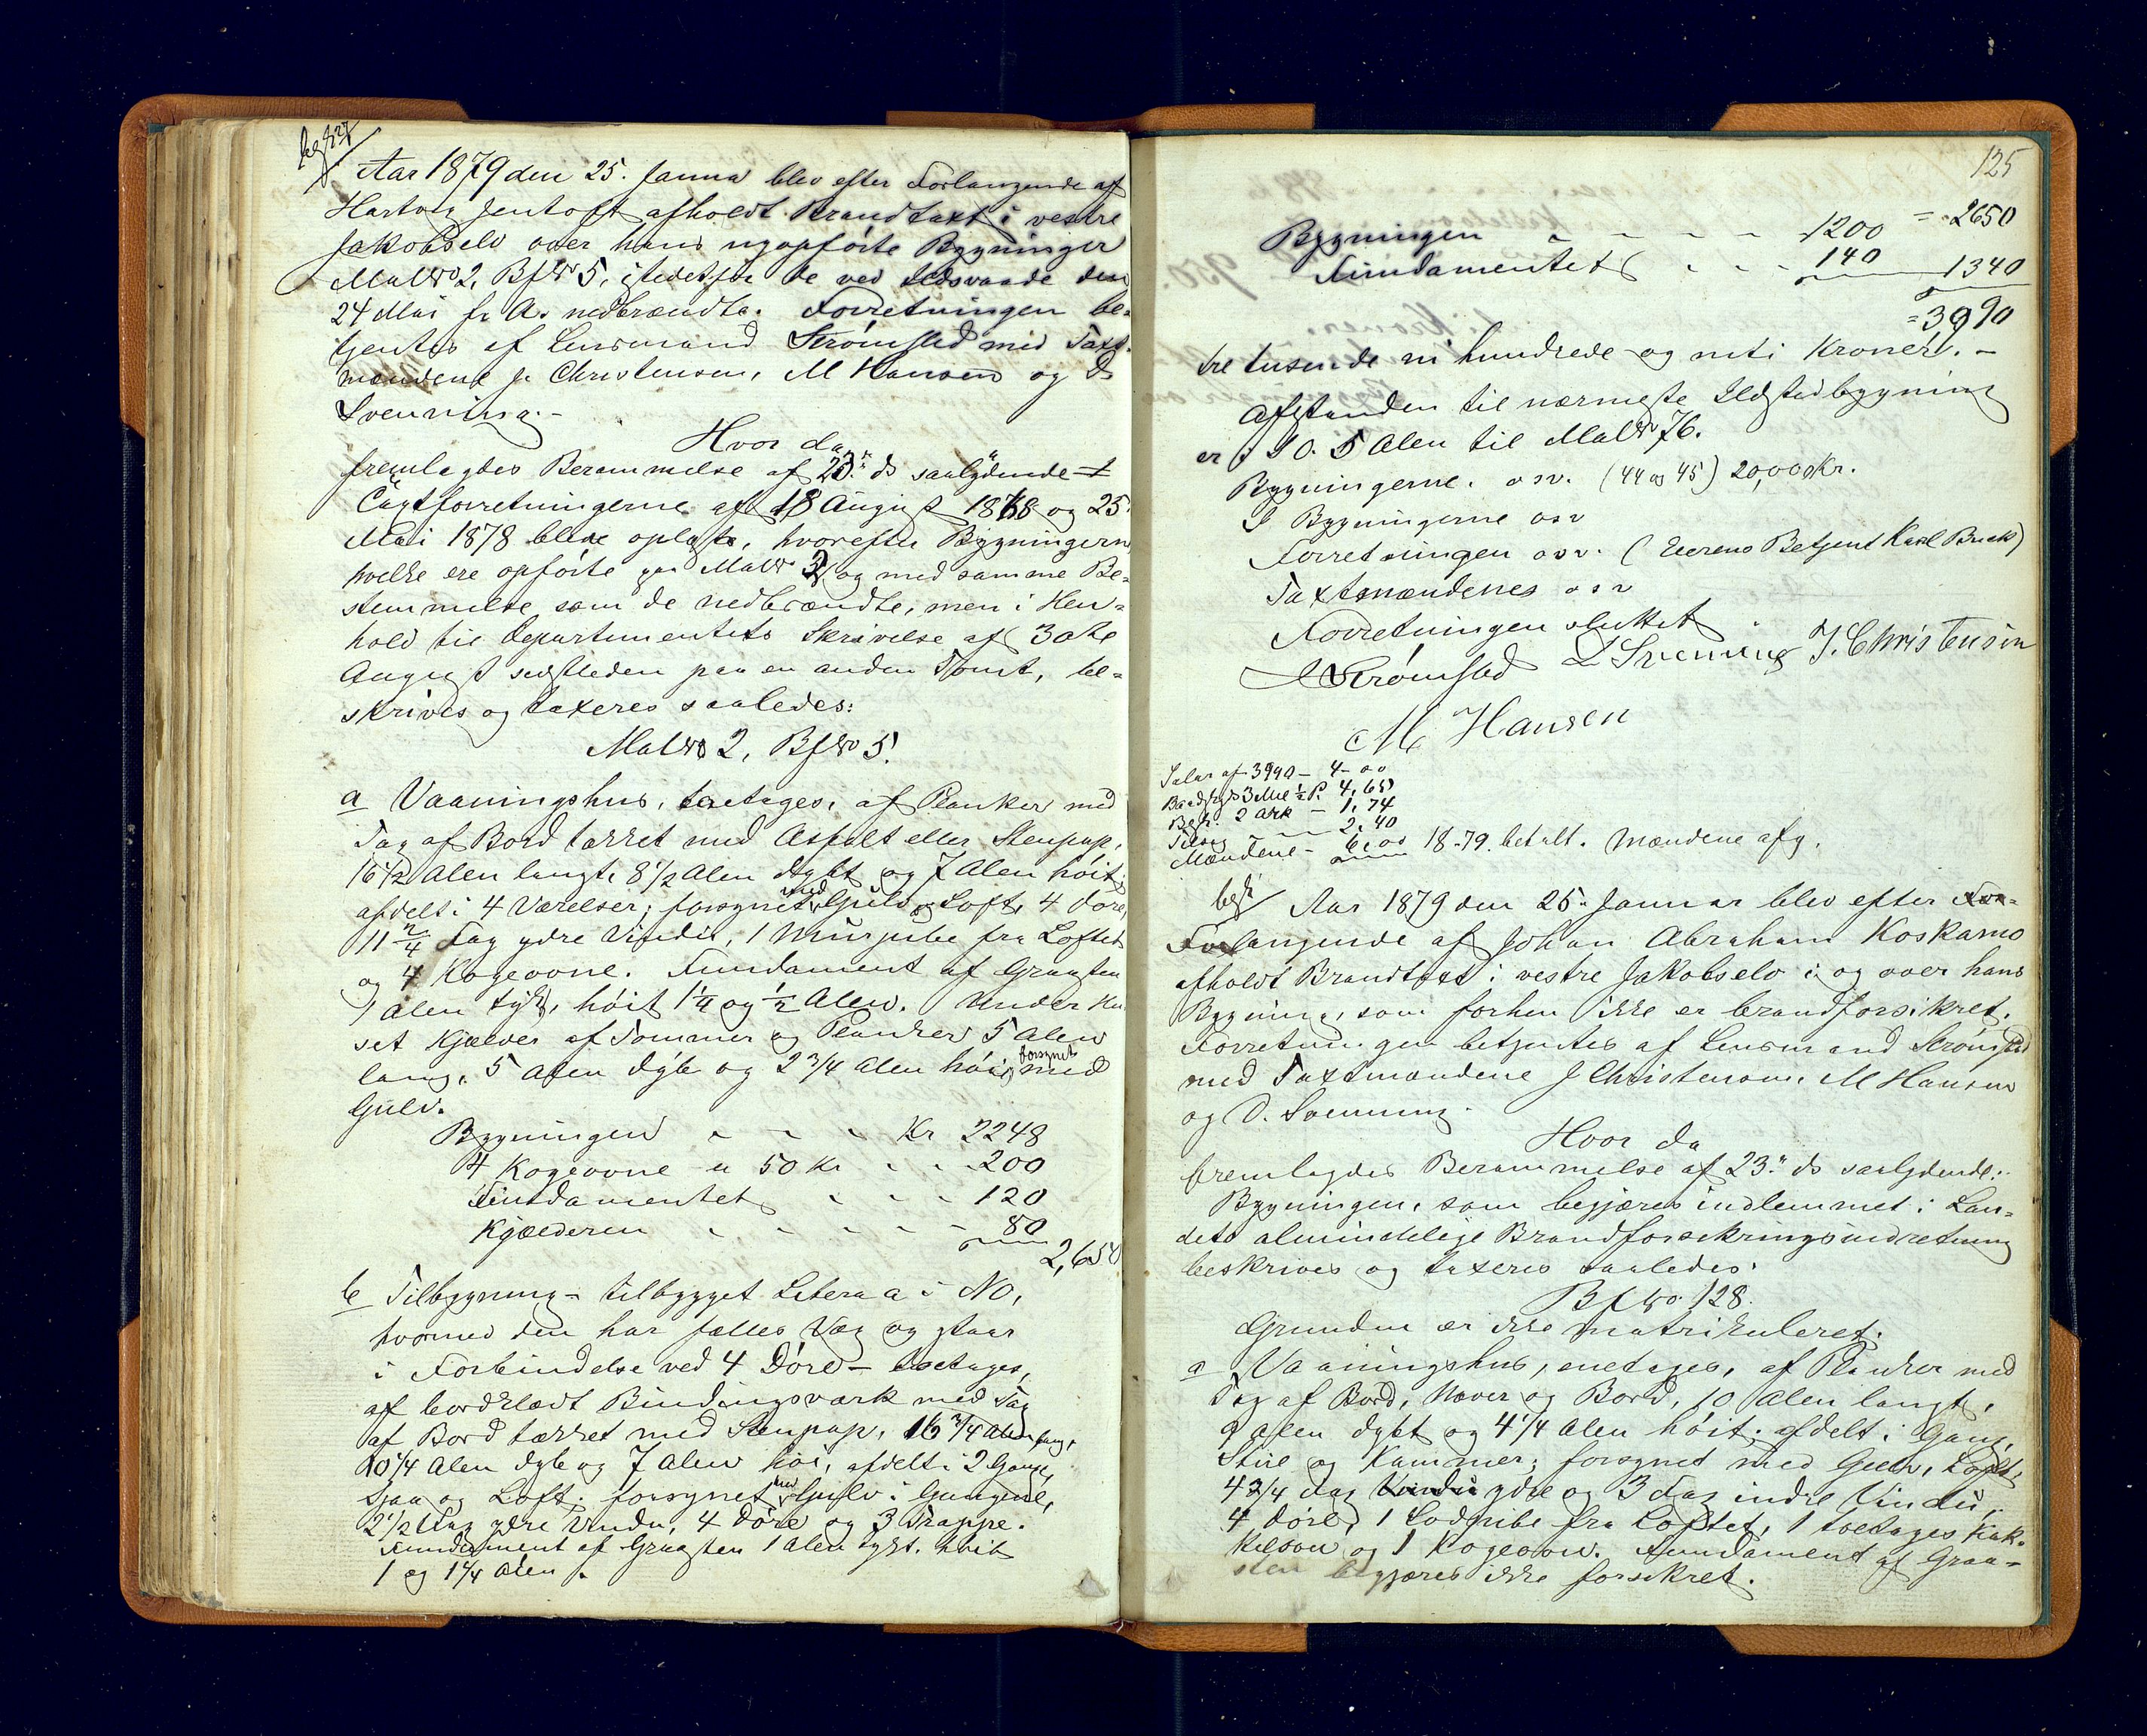 Aar 1879 den 25. Janua blev efter Forlangende af
Hartvig Jentoft afholdt Brandtaxt i vestre
Jakobselv over hans nyopførte Bygninger
Mal No 2, Bf No 5, istedetfor de ved Ildsvaade den
24 Mai f. A. nedbrændte. Forretningen be-
tjentes af Lensmand Strømsted med Taxt-
mændene J. Christensen, M Hansen og D
Svenning.-
Hvor da
fremlagdes Berammelse af 23" ds saalydende
Taxtforretningerne af 18 August 1868 og 25"
Mai 1878 bleve oplæste, hvorefter Bygningerne
hvilke ere opførte paa Mal No 2 og med samme Be-
stemmelse som de nedbrændte, men i Hen-
hold til Departementets Skrivelse af 30te
August sidstleden paa en anden Tomt, be-
skrives og taxeres saaledes:
Mal No 2, Bf No 5.
a Vaaningshus, toetages, af Planker med
Tag af Bord tækket med Asfalt eller Stenpap,
16 1/2 Alen langt, 8 1/2 Alen dybt og 7 Alen høit;
afdelt i 4 Værelser; forsynet med Gulv og Loft, 4 Døre,
11 2/4 Fag ydre Vindu, 1 Murpibe fra Loftet
og 4 Kogeovne. Fundament af Graasten
1 Alen tyk, høit 1 1/4 og 1/2 Alen. Under Hu
set Kjælder af Tømmer og Planker 5 Alen
lang, 5 Alen dyb og 2 3/4 Alen høi, forsynet med
Gulv.
Bygningen " " " Kr 2248
4 Kogeovne a 50 Kr " " 200
Fundamentet " " " 120
Kjælderen " " " " " 80
2,650
b Tilbygning - tilbygget Litera a i NO,
hvormed den har fælles Væg og staar
i Forbindelse ved 4 Døre - toetages,
af bordklædt Bindingsværk med Tag
af Bord tækket med Stenpap, 16 3/4 Alen lang,
10 1/4 Alen dyb og 7 Alen høi, afdelt i 2 Gange,
Sjaa og Loft; forsynet med Gulv i Gangene,
2 1/2 Fag ydre Vindu, 4 Døre og 3 Trappe.
Fundament af Graasten 1 Alen tykt. høit
1 og 1 1/4 Alen.
125
= 2650
Bygningen " " " " " 1200
Fundamentet " " " 140 1340
= 3990
tre tusende ni hundrede og niti Kroner. -
Afstanden til nærmeste Ildstedbygning
er i SO. 5 Alen til Mal No 76.
Bygningerne. osv. (44 og 45) 20,00 Kr.
I Bygningerne osv
Forretningen osv. (Eierens Betjent Karl Buck)
Taxtmændenes osv
Forretningen sluttet.
Strømsted D Svenning J. Christensen
M Hansen
Salær af 3990 - 4-00
3 Mil 1/2 P. 4,65
2 Ark - 1,74
2,40
Mændene - 6,00 18-79. betalt. Mændene afg.
besk Aar 1879 den 25. Januar blev efter For-
Forlangende af Johan Abraham Koskamo
afholdt Brandtaxt i vestre Jakobselv i og over hans
Bygning, som forhen ikke er brandforsikret.
Forretningen betjentes af Lensmand Strømsted
med Taxtmændene J Christensen, M Hansen
og D. Svenning.
Hvor da
fremlagdes Berammelse af 23" ds saalydende:
Bygningen, som begjæres indlemmet i Lan-
dets almindelige Brandforsikringsindretning
beskrives og taxeres saaledes.
Bf No 128.
Grunden er ikke matrikuleret.
a Vaaningshus, enetages, af Planker med
Tag af Bord, Næver og Bord, 10 Alen langt,
9 Alen dybt og 4 1/4 Alen høit; afdelt i Gang,
Stue og Kammer; forsynet med Gulv, Loft,
4 2/4 Fag Vindu ydre og 3 Fag indre Vindu,
4 Døre, 1 Lodpibe fra Loftet, 1 toetages Kak-
kelovn og 1 Kogeovn. Fundament af Graa-
sten begjæres ikke forsikret.